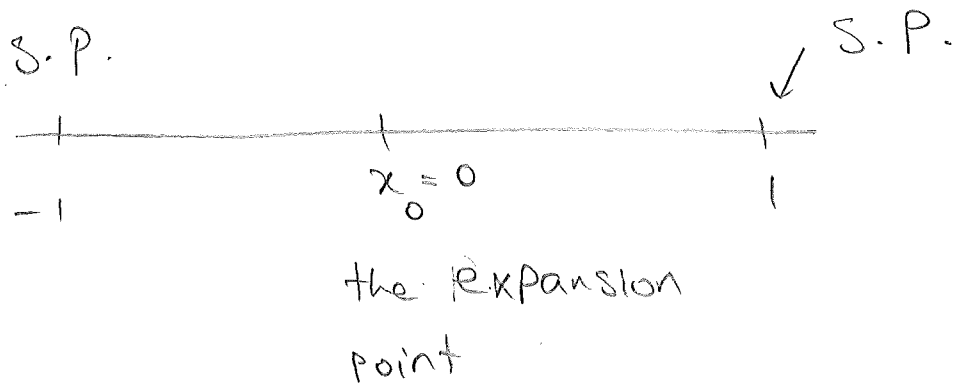 S.P.
S.P.
x₀ = 0
-1
1
the expansion
point